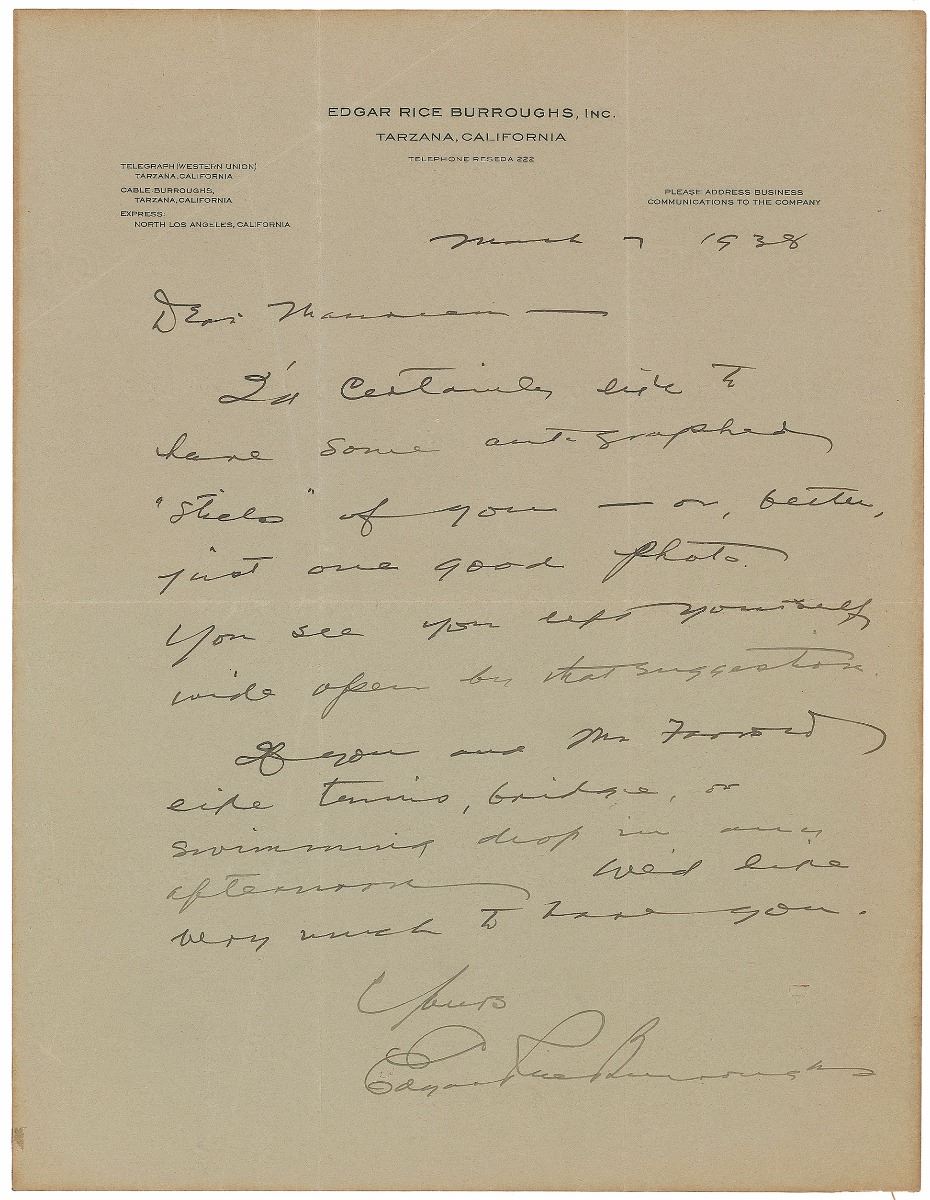 EDGAR RICE BURROUGHS, INC.
TARZANA, CALIFORNIA
TELEPHONE RESEDA 222
TELEGRAPH (WESTERN UNION)
TARZANA, CALIFORNIA
CABLE: BURROUGHS,
TARZANA, CALIFORNIA
EXPRESS:
NORTH LOS ANGELES, CALIFORNIA
PLEASE ADDRESS BUSINESS
COMMUNICATIONS TO THE COMPANY
March 7 1938
Dear Maureen —
I'd certainly like to
have some autographed
"stills" of you — or, better,
just one good photo.
You see you left yourself
wide open by that suggestion.
If you and Mr Farrow
like tennis, bridge, or
swimming drop in any
afternoon We'd like
very much to have you.
Yours
Edgar Rice Burroughs